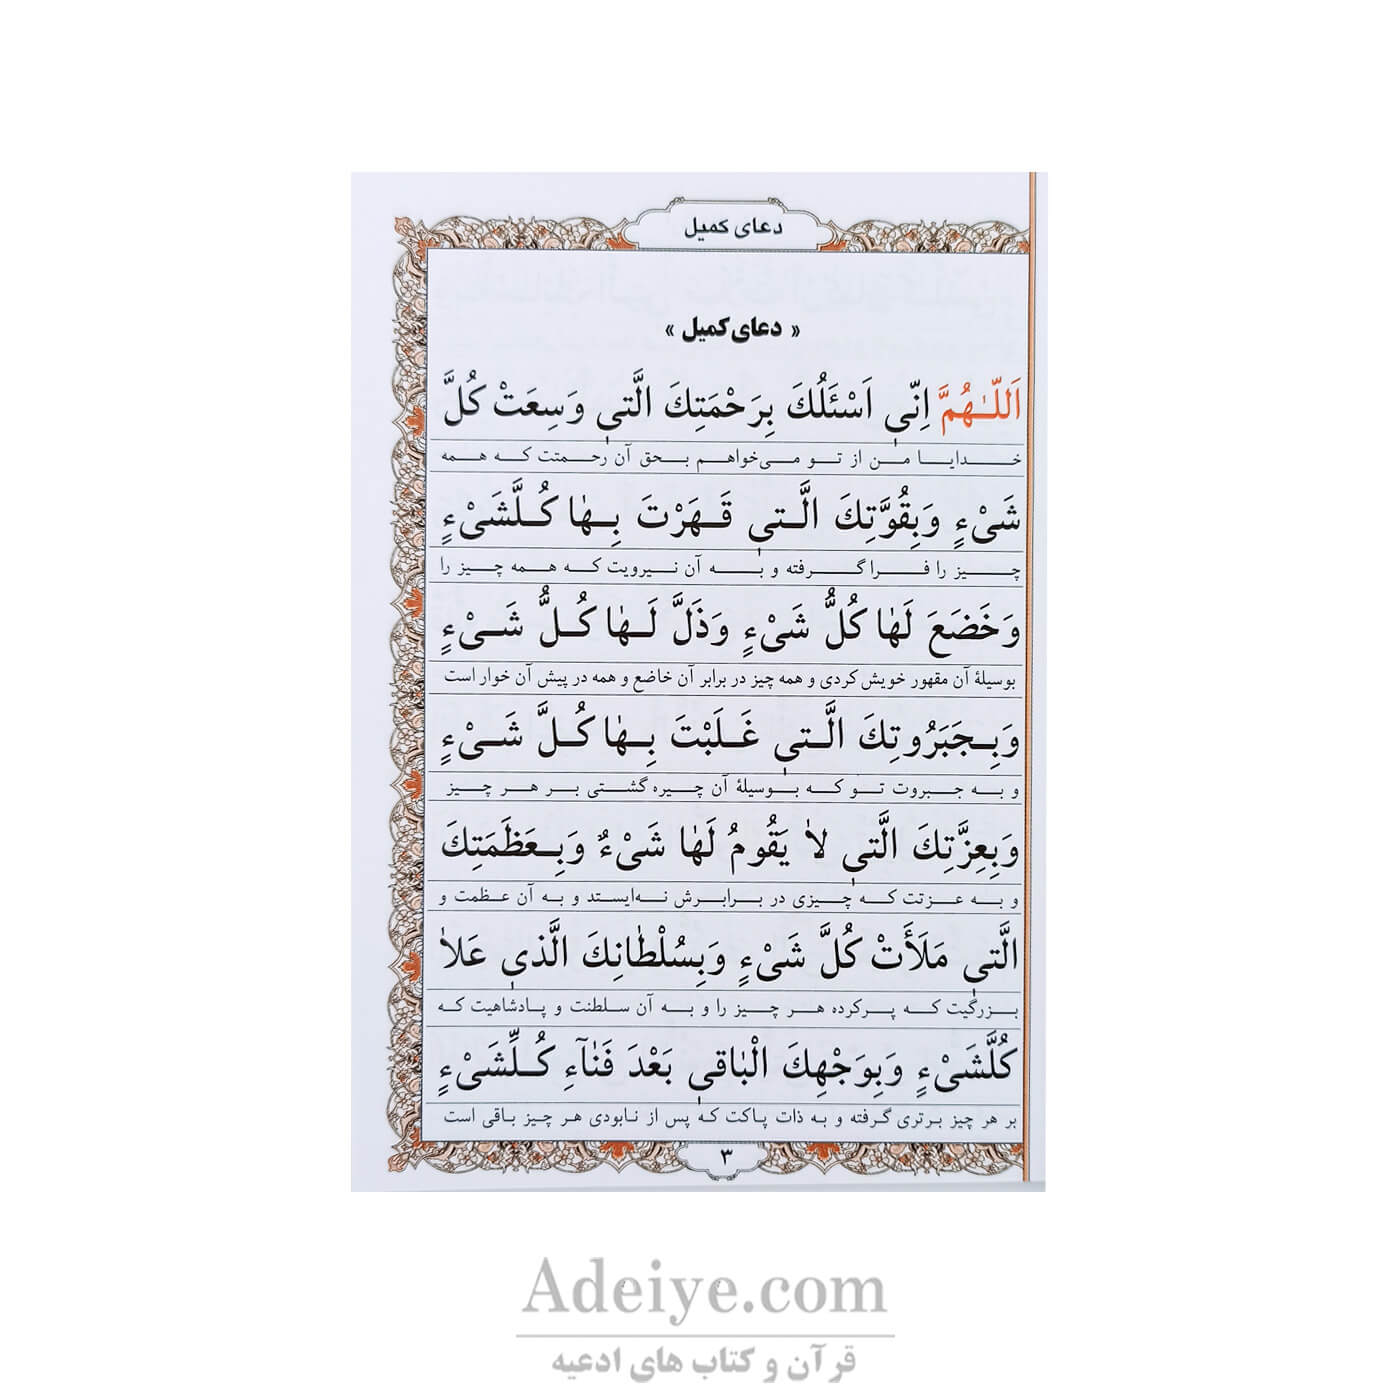 دعای کمیل
« دعای کمیل »
اَللّـٰـهُمَّ اِنّی اَسْئَلُكَ بِرَحْمَتِكَ الَّتی وَسِعَتْ كُلَّ
خدایا من از تو می‌خواهم بحق آن رحمتت که همه
شَیْءٍ وَبِقُوَّتِكَ الَّتی قَهَرْتَ بِهٰا كُلَّشَیْءٍ
چیز را فرا گرفته و به آن نیرویت که همه چیز را
وَخَضَعَ لَهٰا كُلُّ شَیْءٍ وَذَلَّ لَهٰا كُلُّ شَیْءٍ
بوسیلهٔ آن مقهور خویش کردی و همه چیز در برابر آن خاضع و همه در پیش آن خوار است
وَبِجَبَرُوتِكَ الَّتی غَلَبْتَ بِهٰا كُلَّ شَیْءٍ
و به جبروت تو که بوسیلهٔ آن چیره گشتی بر هر چیز
وَبِعِزَّتِكَ الَّتی لاٰ یَقُومُ لَهٰا شَیْءٌ وَبِعَظَمَتِكَ
و به عزتت که چیزی در برابرش نه‌ایستد و به آن عظمت و
الَّتی مَلَأَتْ كُلَّ شَیْءٍ وَبِسُلْطٰانِكَ الَّذی عَلاٰ
بزرگیت که پرکرده هر چیز را و به آن سلطنت و پادشاهیت که
كُلَّشَیْءٍ وَبِوَجْهِكَ الْبٰاقی بَعْدَ فَنٰآءِ كُلِّشَیْءٍ
بر هر چیز برتری گرفته و به ذات پاکت که پس از نابودی هر چیز باقی است
۳
Adeiye.com
قرآن و کتاب های ادعیه